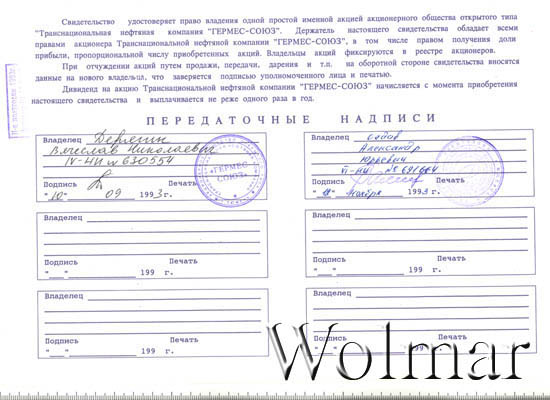 Свидетельство удостоверяет право владения одной простой именной акцией акционерного общества открытого типа
"Транснациональная нефтяная компания "ГЕРМЕС-СОЮЗ". Держатель настоящего свидетельства обладает всеми
правами акционера Транснациональной нефтяной компании "ГЕРМЕС-СОЮЗ", в том числе правом получения доли
прибыли, пропорциональной числу приобретенных акций. Владельцы акций фиксируются в реестре акционеров.
При отчуждении акций путем продажи, передачи, дарения и т.п. на оборотной стороне свидетельства вносятся
данные на нового владельца, что заверяется подписью уполномоченного лица и печатью.
Дивиденд на акцию Транснациональной нефтяной компании "ГЕРМЕС-СОЮЗ" начисляется с момента приобретения
настоящего свидетельства и выплачивается не реже одного раза в год.
ПЕРЕДАТОЧНЫЕ НАДПИСИ
Владелец Дерягин
Вячеслав Николаевич
IV-НИ № 630554
Подпись Печать
"10" 09 1993 г.
"ГЕРМЕС-СОЮЗ"
Владелец
Александр
Юрьевич
VI-
Подпись Печать
ноября 1993 г.
Владелец
Подпись Печать
"__" 199 г.
Владелец
Подпись Печать
"__" 199 г.
Владелец
Подпись Печать
"__" 199 г.
Владелец
Подпись Печать
"__" 199 г.
Wolmar